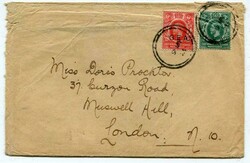 Miss Doris Procktor
37 Curzon Road,
Muswell Hill,
London, N.